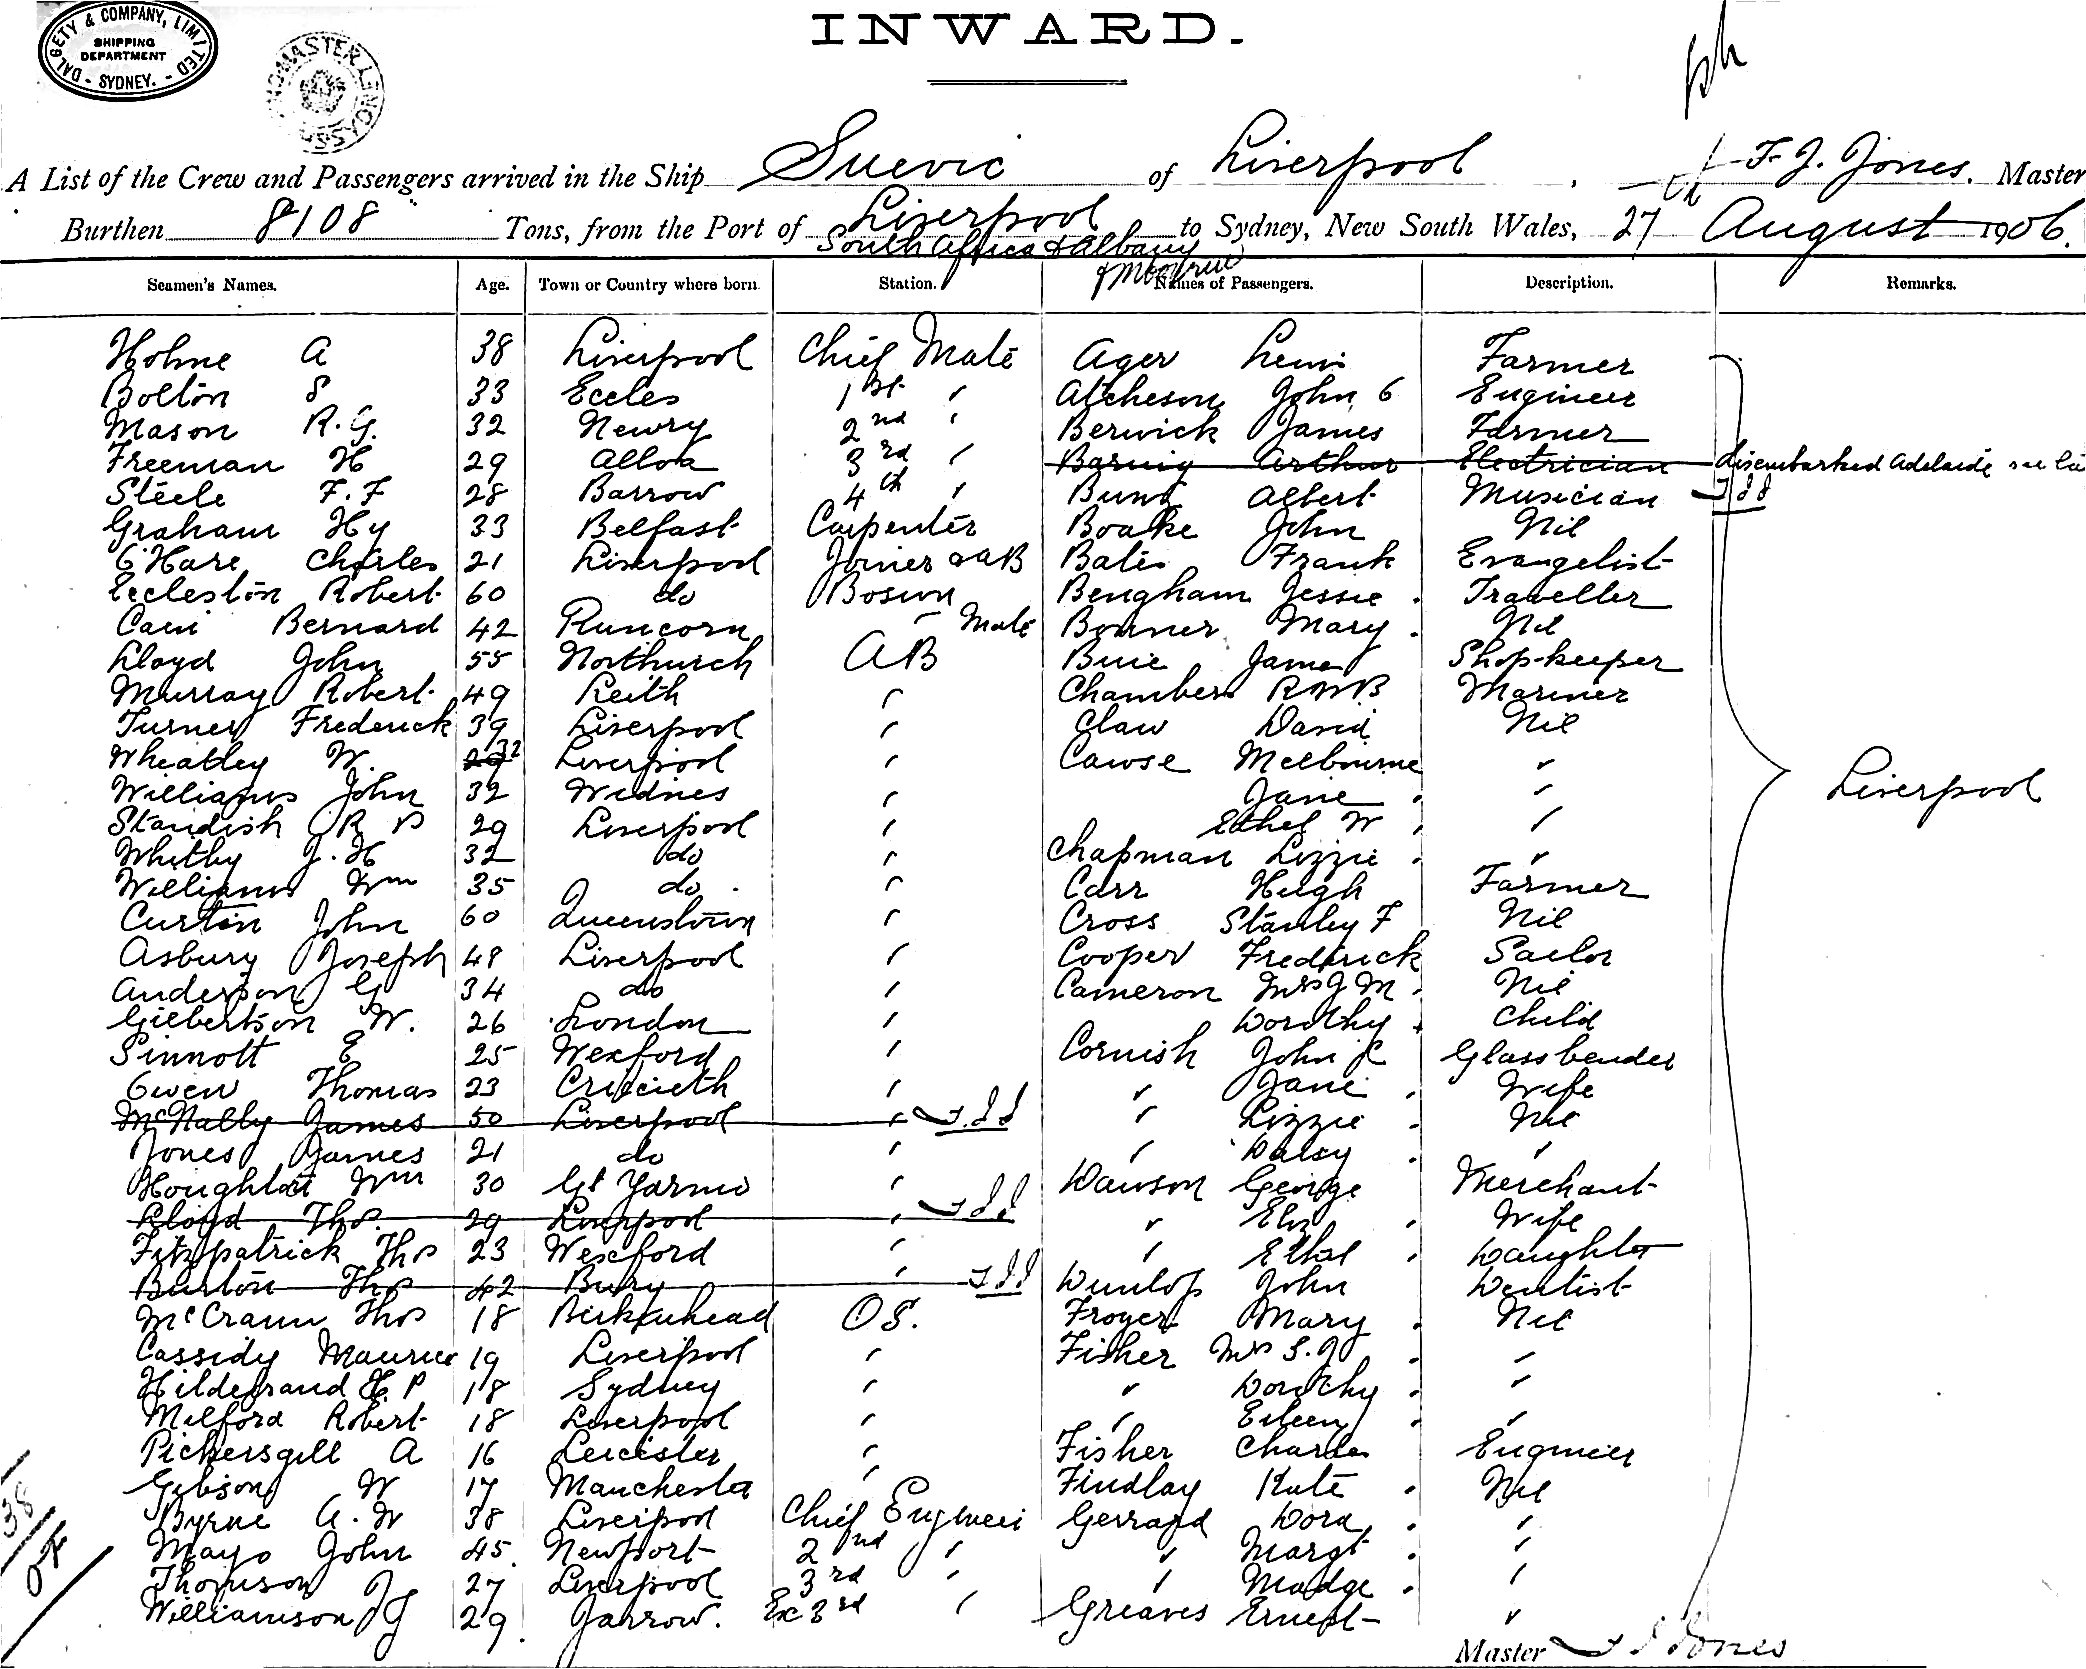 DALGETY & COMPANY, LIMITED
SHIPPING
DEPARTMENT
- SYDNEY. -
INWARD.
A List of the Crew and Passengers arrived in the Ship Suevic of Liverpool, F. J. Jones. Master
Burthen 8108 Tons, from the Port of Liverpool to Sydney, New South Wales, 27 August 1906.
South Africa & Albany
Seamen's Names. Age. Town or Country where born Station. Names of Passengers. Description. Remarks.
Hohne A 38 Liverpool Chief Mate Ager Lewis Farmer
Bolton S 33 Eccles 1st " Atcheson John G Engineer
Mason R. G. 32 Newry 2nd " Berwick James Farmer
Freeman H 29 Alloa 3rd " Arthur Electrician disembarked Adelaide
Steele F. F 28 Barrow 4th " Albert Musician
Graham Hy 33 Belfast Carpenter Boake John Nil
O'Hare Charles 21 Liverpool Joiner & AB Bates Frank Evangelist
Eccleston Robert 60 do Bosun Bengham Jessie Traveller
Cain Bernard 42 Runcorn " Mate Bonner Mary Nil
Lloyd John 55 Northurch AB Buie James Shop-keeper
Murray Robert 49 Keith " Chambers R W B Mariner
Turner Frederick 39 Liverpool " Claw David Nil
Wheatley W. 29 32 Liverpool " Cawse Melbourne "
Williams John 32 Widnes " Jane "
Standish R P 29 Liverpool " Ethel W "
Whitby J. H 32 do " Chapman Lizzie "
Williams Wm 35 do " Carr Hugh Farmer
Curtin John 60 Queenstown " Cross Stanley F Nil
Asbury Joseph 48 Liverpool " Cooper Frederick Sailor
Anderson G 34 do " Cameron Mrs J M Nil
Gilbertson W. 26 London " Dorothy Child
Sinnott E 25 Wexford " Cornish John C Glass bender
Owen Thomas 23 Criccieth " " Jane Wife
McNally James 50 Liverpool " " Lizzie Nil
Jones James 21 do " " Daisy "
Houghton Wm 30 Gt Yarmo " Dawson George Merchant
Lloyd Thos. 29 Liverpool " " Eliz Wife
Fitzpatrick Thos 23 Wexford " " Ethel Daughter
Burton Thos 42 Bury " Dunlop John Dentist
McCrann Thos 18 Birkenhead OS. Froyer Mary Nil
Cassidy Maurice 19 Liverpool " Fisher Mrs S. J "
Hildebrand H. P 18 Sydney " " Dorothy "
Milford Robert 18 Liverpool " " Eileen "
Pickersgill A 16 Leicester " Fisher Charles Engineer
Gibson W 17 Manchester " Findlay Kate Nil
Byrne A. W 38 Liverpool Chief Engineer Gerrard Dora "
Mayo John 45 Newport 2nd " " Margt "
Thomson J 27 Liverpool 3rd " " Madge "
Williamson J G 29 Jarrow. Ex 3rd " Greaves Ernest "
Liverpool
Master F J Jones